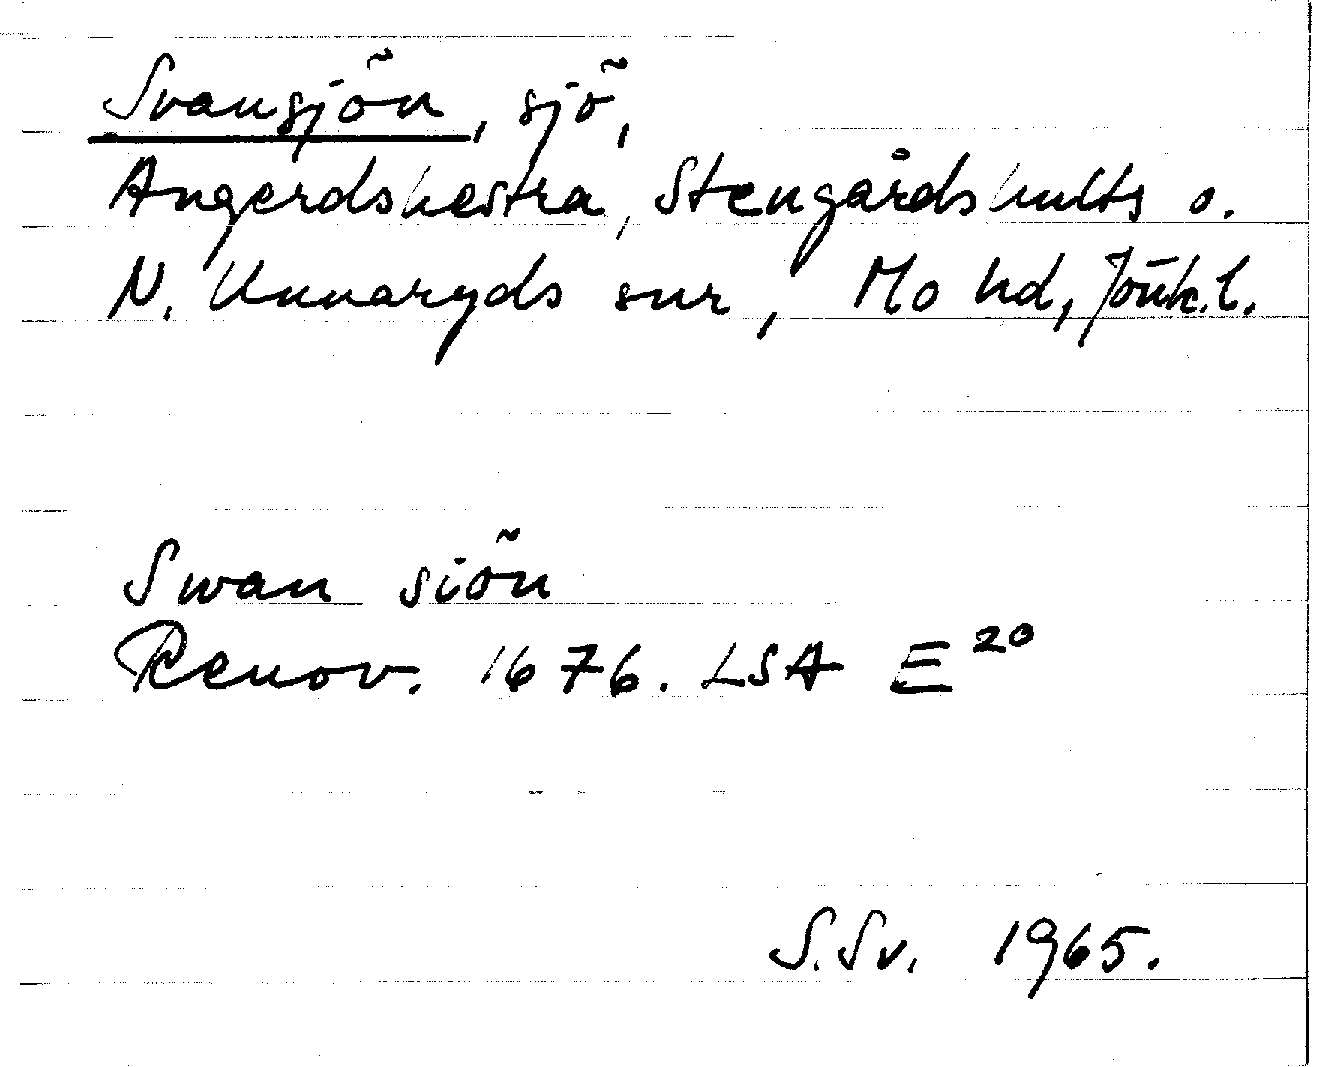 Svansjön, sjö,
Angerdshestra, Stengårdshults o.
N. Unnaryds snr, Mo hd, Jönk.l.
Swan siön
Renov. 1676. LSA E 20
S.Sv. 1965.